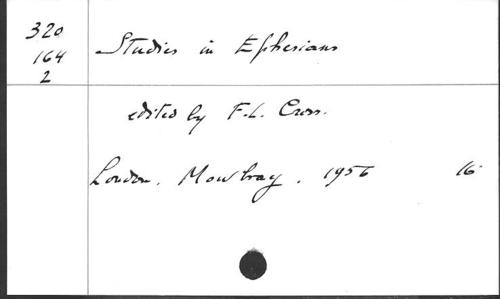 320
164
2
Studies in Ephesians
edited by F.L. Cross.
London. Mowbray. 1956 16